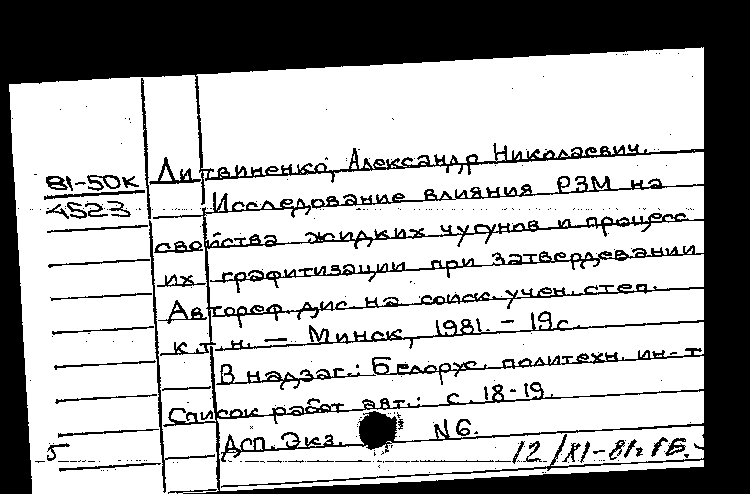 81-50к
4523
Литвиненко, Александр Николаевич.
Исследование влияния РЗМ на
свойства жидких чугунов и процесс
их графитизации при затвердевании
Автореф. дис. на соиск. учен. степ.
к.т.н. — Минск, 1981. - 19с.
В надзаг.: Белорус. политехн. ин-т
Список работ авт.: с. 18-19.
Дсп. Экз. N6.
5
12/XI-81г ГБ.